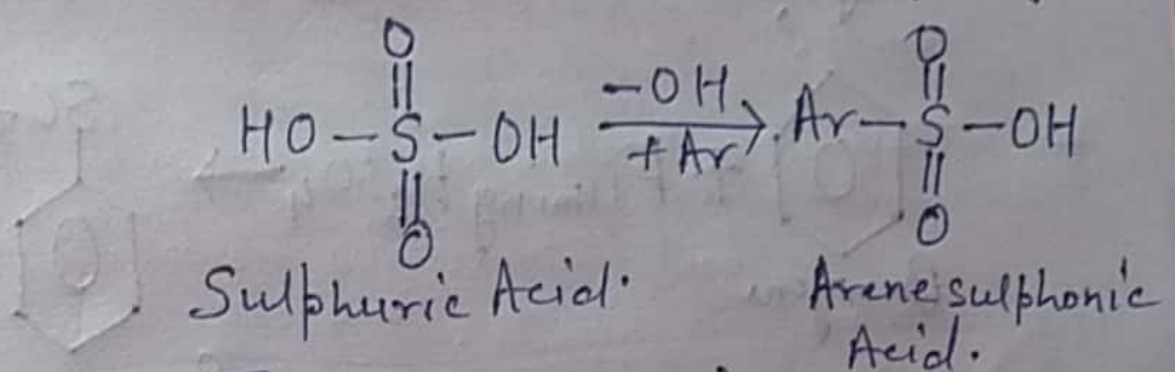 O O
HO-S-OH -OH Ar-S-OH
+Ar
O O
Sulphuric Acid. Arene sulphonic
Acid.